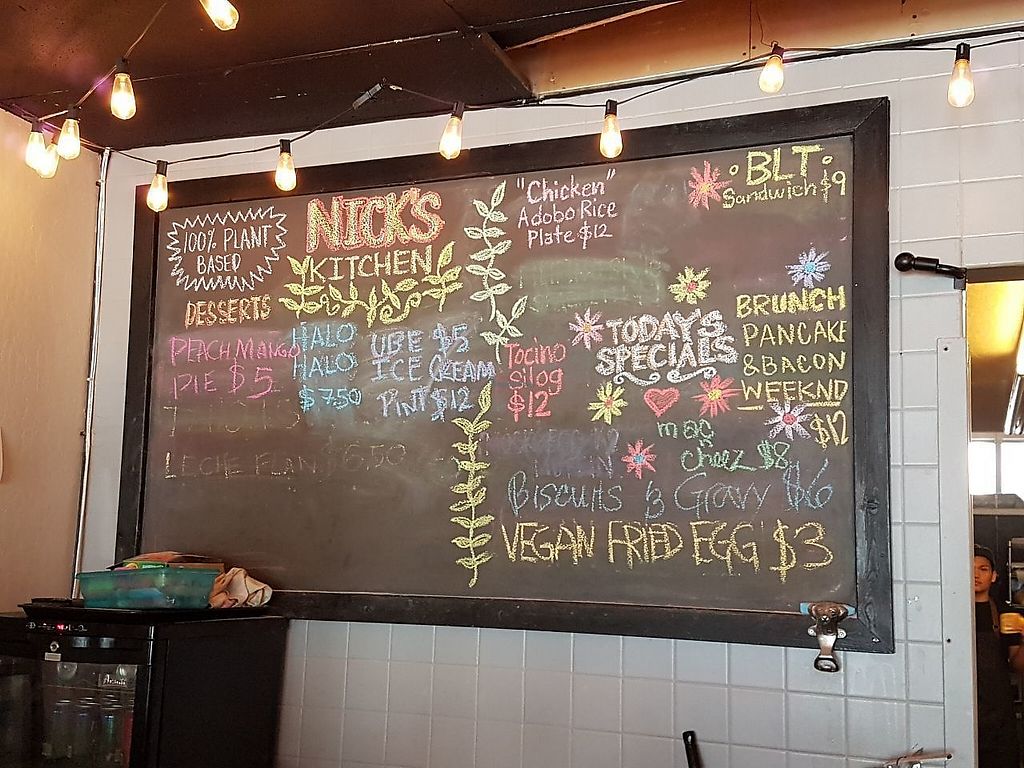 100% PLANT
BASED
NICK'S
KITCHEN
DESSERTS
PEACH MANGO
PIE $5
HALO
HALO
$7.50
UBE $5
ICE CREAM
PINT $12
LECHE FLAN $6.50
"Chicken"
Adobo Rice
Plate $12
BLT
Sandwich $9
TODAY'S
SPECIALS
Tocino
Silog
$12
BRUNCH
PANCAKE
& BACON
WEEKND
$12
mac
cheez $8
Biscuits & Gravy $6
VEGAN FRIED EGG $3